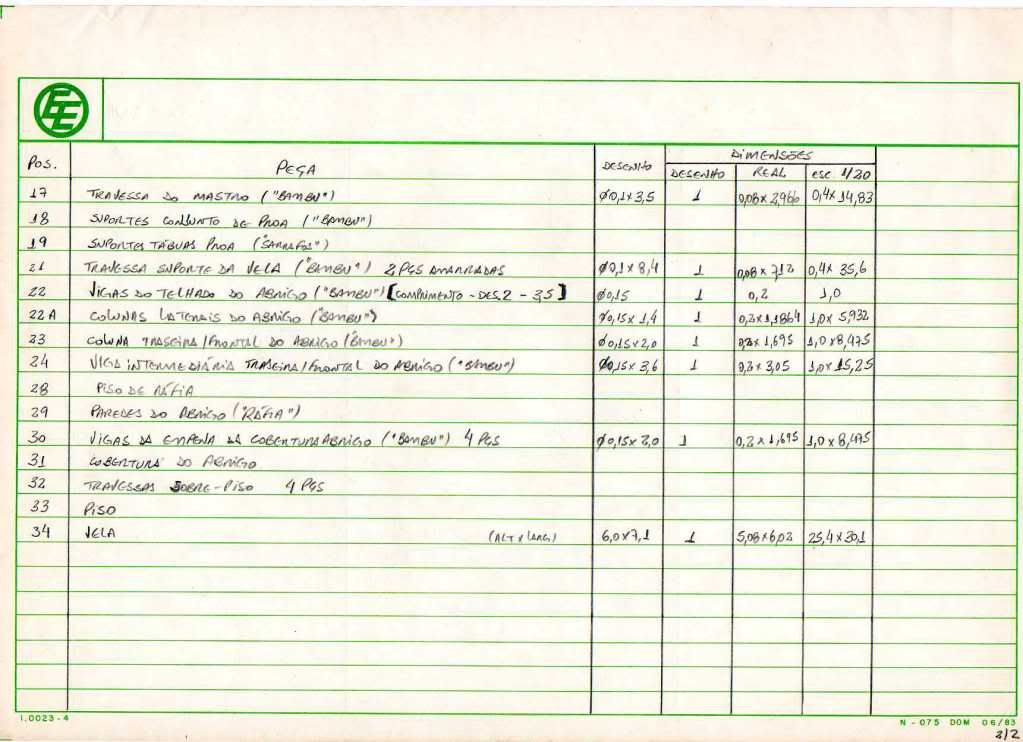 EE
DIMENSÕES
POS. PEÇA DESENHO DESENHO REAL ESC 1/20
17 TRAVESSA DO MASTRO ("BAMBU") Ø0,1x3,5 1 0,08x2,966 0,4x14,83
18 SUPORTES CONJUNTO DE PROA ("BAMBU")
19 SUPORTES TÁBUAS PROA ("SARRAFOS")
21 TRAVESSA SUPORTE DA VELA ("BAMBU") 2 PÇS AMARRADAS Ø0,1x8,4 1 0,08x7,12 0,4x35,6
22 VIGAS DO TELHADO DO ABRIGO ("BAMBU") [COMPRIMENTO - DES.2 - 3,5] Ø0,15 1 0,2 1,0
22A COLUNAS LATERAIS DO ABRIGO ("BAMBU") Ø0,15x1,4 1 0,2x1,1864 1,0x5,932
23 COLUNA TRASEIRA/FRONTAL DO ABRIGO ("BAMBU") Ø0,15x2,0 1 0,2x1,695 1,0x8,475
24 VIGA INTERMEDIÁRIA TRASEIRA/FRONTAL DO ABRIGO ("BAMBU") Ø0,15x3,6 1 0,2x3,05 1,0x15,25
28 PISO DE RÁFIA
29 PAREDES DO ABRIGO ("RÁFIA")
30 VIGAS DA EMPENA DA COBERTURA ABRIGO ("BAMBU") 4 PÇS Ø0,15x2,0 1 0,2x1,695 1,0x8,475
31 COBERTURA DO ABRIGO
32 TRAVESSAS SOBRE-PISO 4 PÇS
33 PISO
34 VELA (ALT x LARG) 6,0x7,1 1 5,08x6,02 25,4x30,1
1.0023-4
N - 075 DOM 06/83
2/2